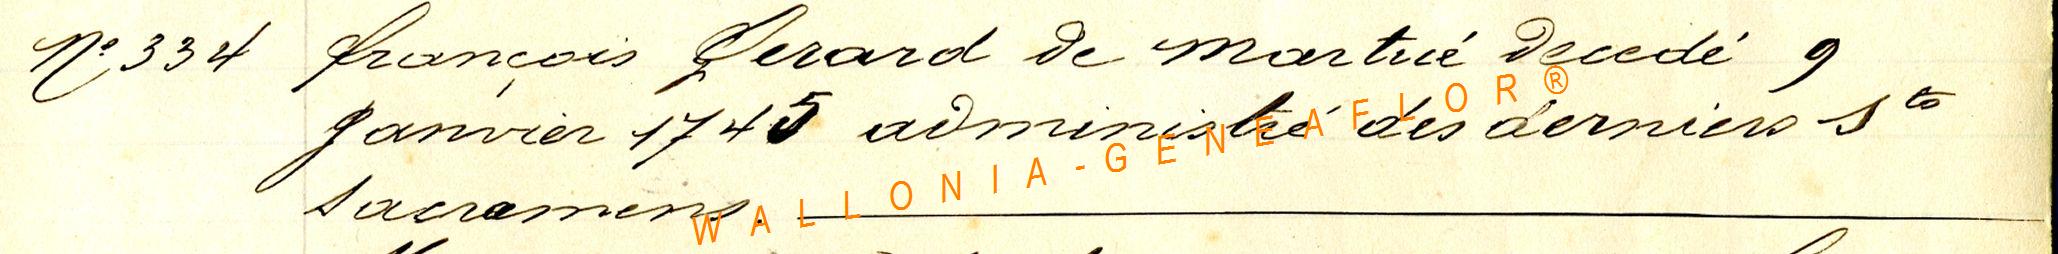 N° 334 françois Gerard de Martué decedé 9
Janvier 1745 administré des derniers Sts
sacremens.
WALLONIA-GENEAFLOR®